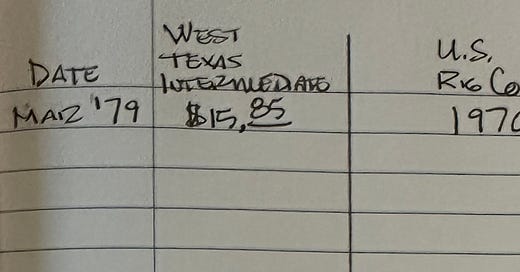 WEST
TEXAS
INTERMEDIATE
U.S.
RIG Co
DATE
MAR '79
$15,85
1970